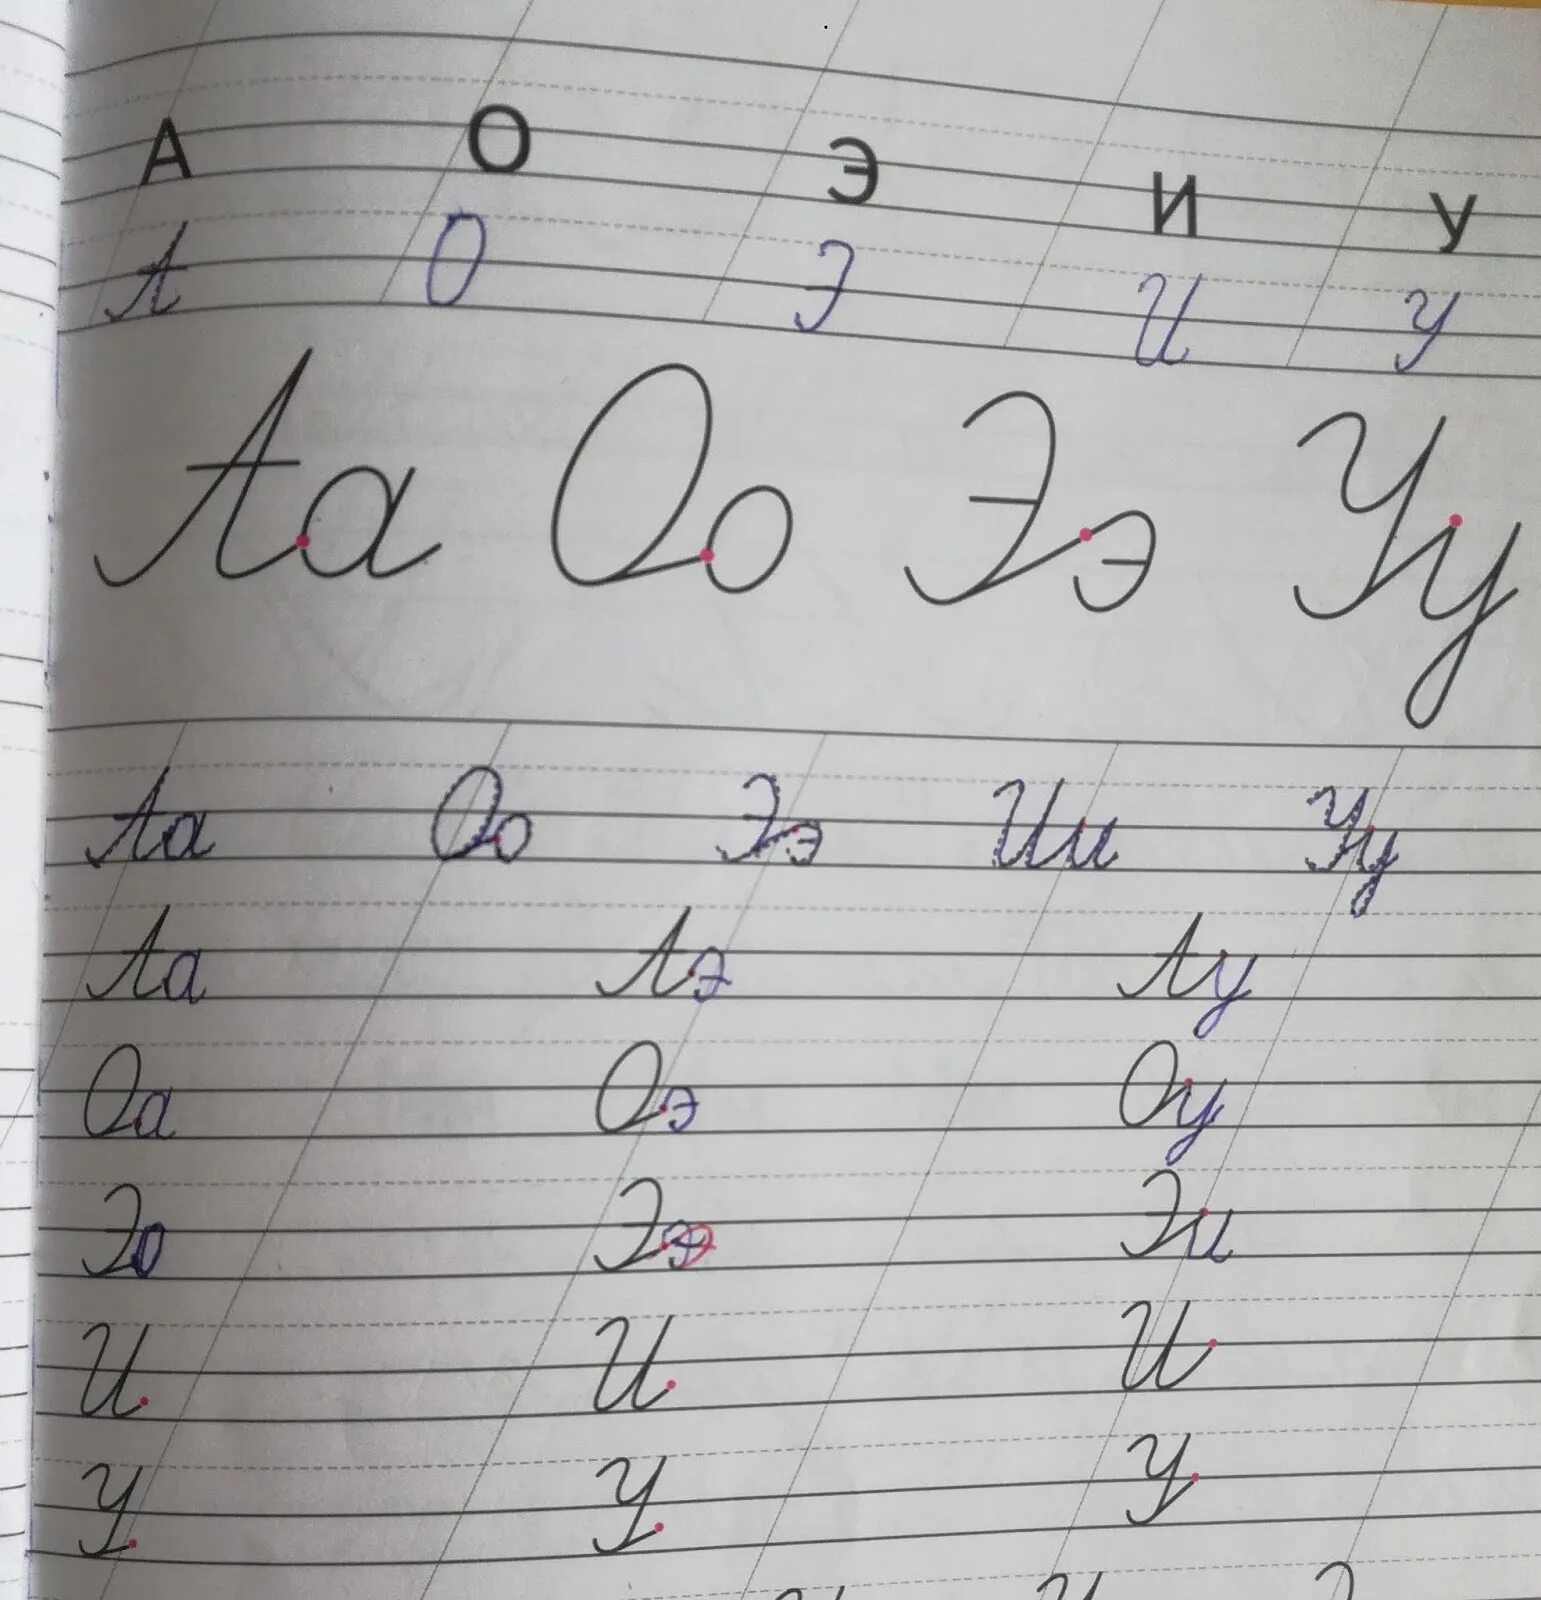 А О Э И У
А О Э И У
Аа Оо Ээ Уу
Аа Оо Ээ Ии Уу
Аа Аэ Ау
Оа Оэ Оу
Эо Ээ Эи
И И И
У У У